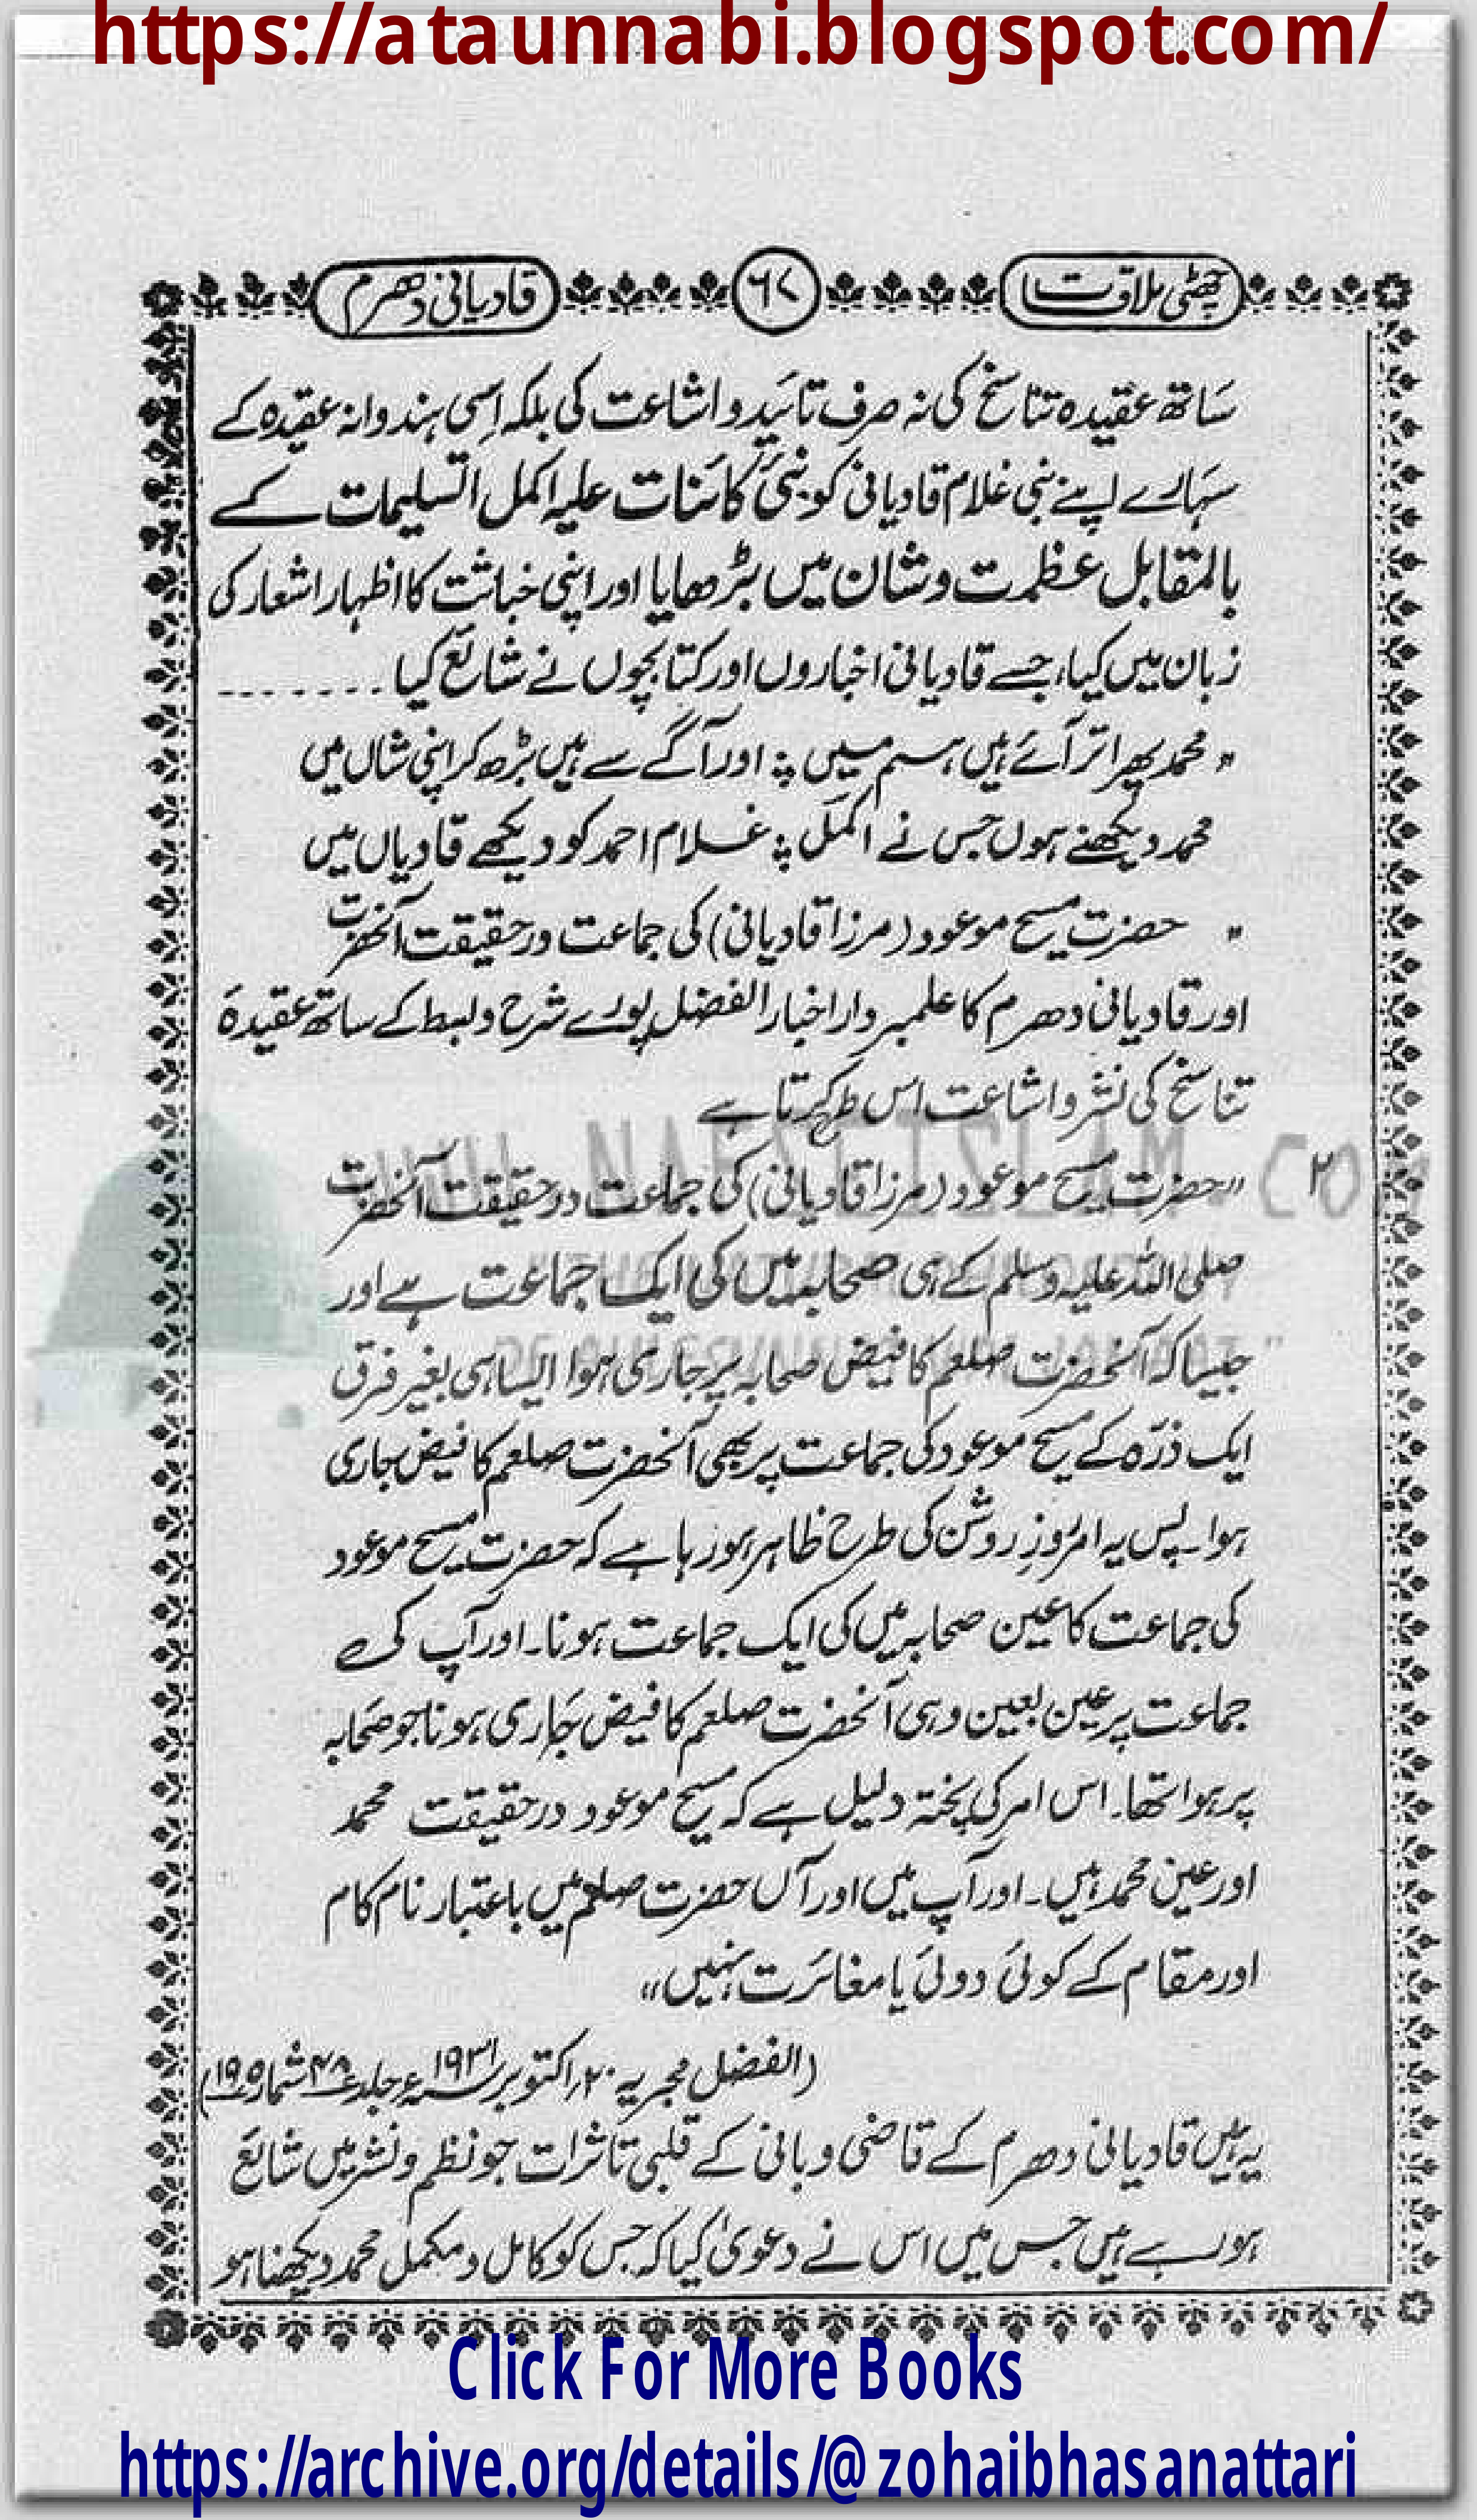 https://ataunnabi.blogspot.com/
چھٹی ملاقات ۶۷ قادیانی دھرم
ساتھ عقیدہ تناسخ کی نہ صرف تائید و اشاعت کی بلکہ اِسی ہندوانہ عقیدہ کے
سہارے اپنے نبی غلام قادیانی کو نبیٔ کائنات علیہ اکمل التسلیمات کے
بالمقابل عظمت و شان میں بڑھایا اور اپنی خباثت کا اظہار اشعار کی
زبان میں کیا، جسے قادیانی اخباروں اور کتابچوں نے شائع کیا ۔۔۔۔۔۔۔
"محمد پھر اتر آئے ہیں ہم میں ؛ اور آگے سے ہیں بڑھ کر اپنی شاں میں
محمد دیکھنے ہوں جس نے اکمل ؛ غلام احمد کو دیکھے قادیاں میں
" حضرت مسیح موعود (مرزا قادیانی) کی جماعت درحقیقت آنحضرت
اور قادیانی دھرم کا علمبردار اخبار الفضل پورے شرح و بسط کے ساتھ عقیدۂ
تناسخ کی نشر و اشاعت اس طرح کرتا ہے
۲ "حضرت مسیح موعود (مرزا قادیانی) کی جماعت درحقیقت آنحضرت
صلی اللہ علیہ وسلم کے ہی صحابہ میں کی ایک جماعت ہے اور
جیسا کہ آنحضرت صلعم کا فیض صحابہ پر جاری ہوا ایسا ہی بغیر فرق
ایک ذرّہ کے مسیح موعود کی جماعت پر بھی آنحضرت صلعم کا فیض جاری
ہوا۔ پس یہ امر روزِ روشن کی طرح ظاہر ہو رہا ہے کہ حضرت مسیح موعود
کی جماعت کا عین صحابہ میں کی ایک جماعت ہونا۔ اور آپ کی
جماعت پر عین بعین وہی آنحضرت صلعم کا فیض جاری ہونا جو صحابہ
پر ہوا تھا۔ اس امر کی پختہ دلیل ہے کہ مسیح موعود درحقیقت محمد
اور عین محمد ہیں۔ اور آپ میں اور آں حضرت صلعم میں باعتبار نام کام
اور مقام کے کوئی دوئی یا مغائرت نہیں"
(الفضل مجریہ ۲۰؍ اکتوبر ۱۹۳۱ء جلد ۴۸ شمارہ ۱۹۵)
یہ ہیں قادیانی دھرم کے قاضی و بانی کے قلبی تاثرات جو نظم و نثر میں شائع
ہو رہے ہیں جس میں اس نے دعویٰ کیا کہ جس کو کامل و مکمل محمد دیکھنا ہو
Click For More Books
https://archive.org/details/@zohaibhasanattari